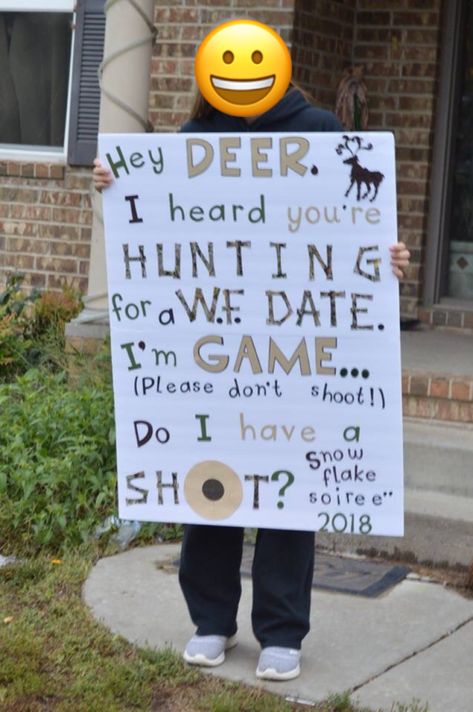 Hey DEER,
I heard you're
HUNTING
for a W.F. DATE.
I'm GAME...
(Please don't shoot!)
Do I have a
SHOT?
Snow
flake
soiree"
2018